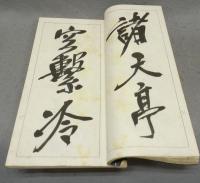 諸天亭
空繫冷